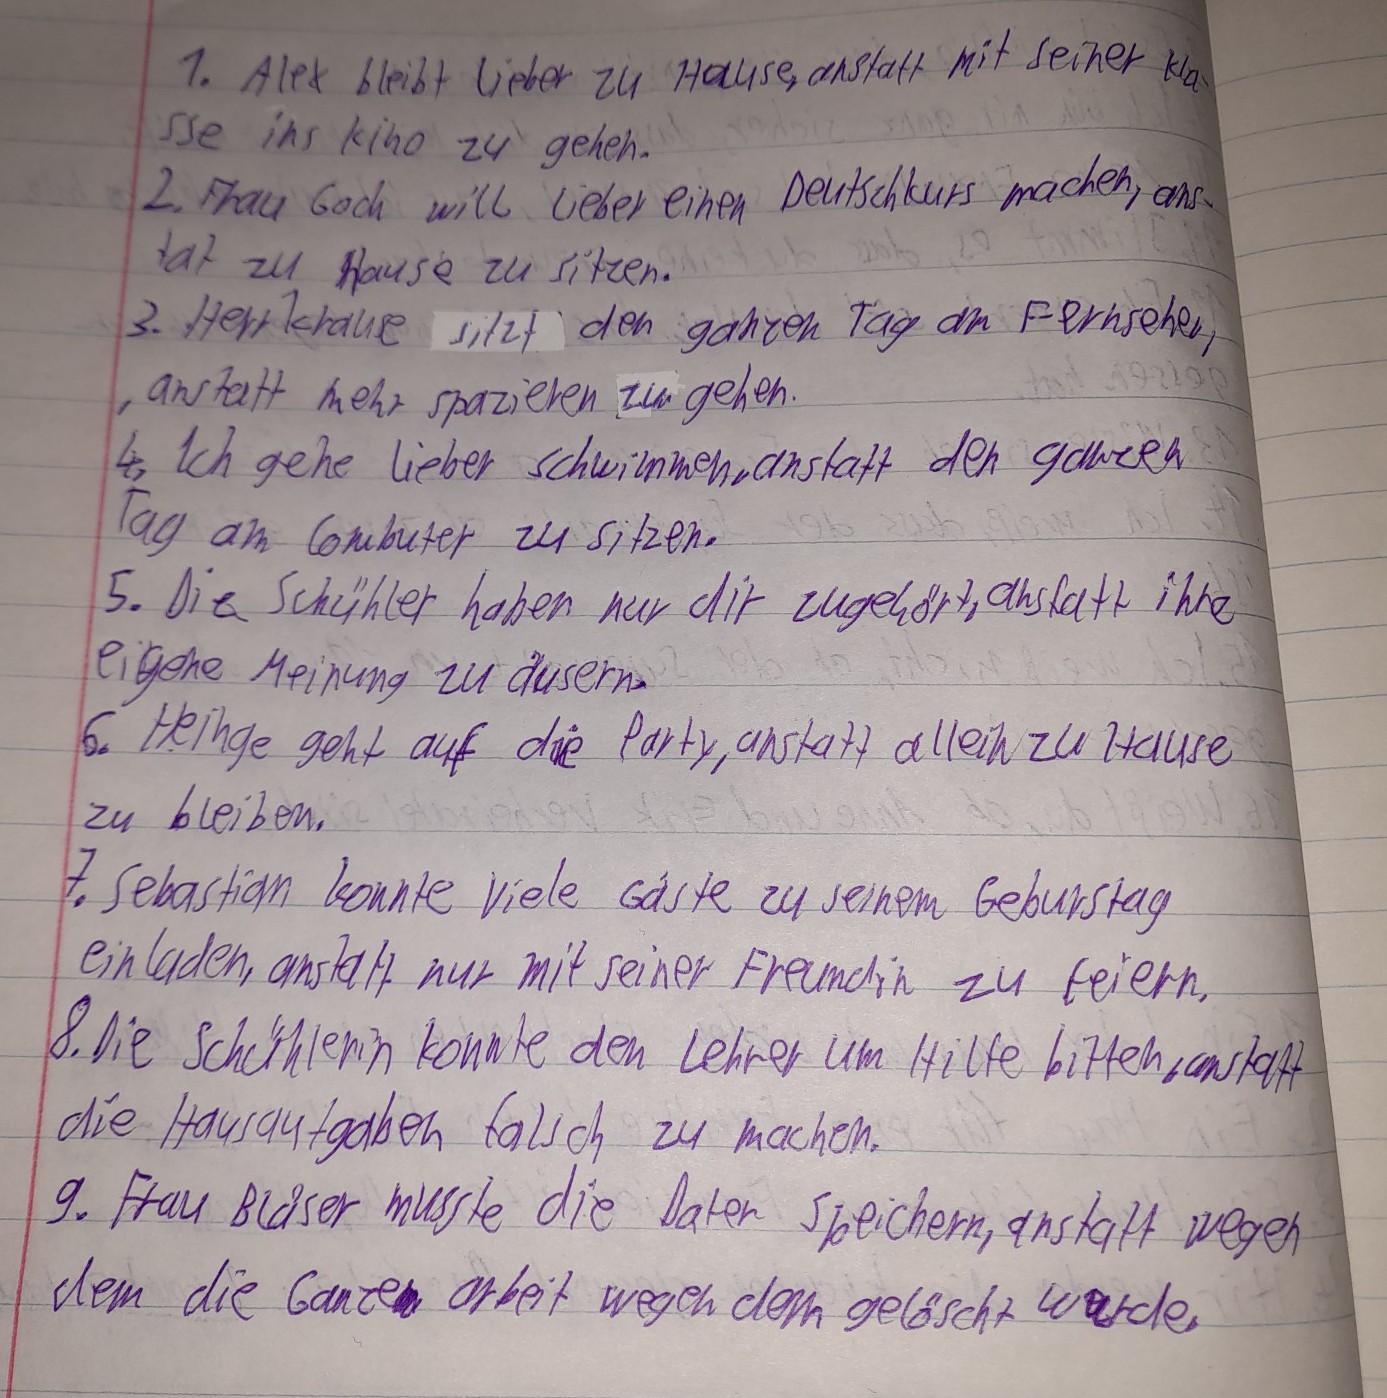 1. Alex bleibt lieber zu Hause, anstatt mit seiner Kla-
sse ins Kino zu gehen.
2. Frau Goch will lieber einen Deutschkurs machen, ans-
tat zu Hause zu sitzen.
3. Herr Krause sitzt den ganzen Tag am Fernseher,
, anstatt mehr spazieren zu gehen.
4. Ich gehe lieber schwimmen, anstatt den ganzen
Tag am Combuter zu sitzen.
5. Die Schühler haben nur dir zugehört, anstatt ihre
eigene Meinung zu äusern.
6. Heinge geht auf die Party, anstatt allein zu Hause
zu bleiben.
7. Sebastian konnte viele Gäste zu seinem Geburstag
einladen, anstatt nur mit seiner Freundin zu feiern.
8. Die Schühlerin konnte den Lehrer um Hilfe bitten, anstatt
die Hausaufgaben falsch zu machen.
9. Frau Bläser musste die Daten speichern, anstatt wegen
dem die Ganzen arbeit wegen dem gelöscht wurde.